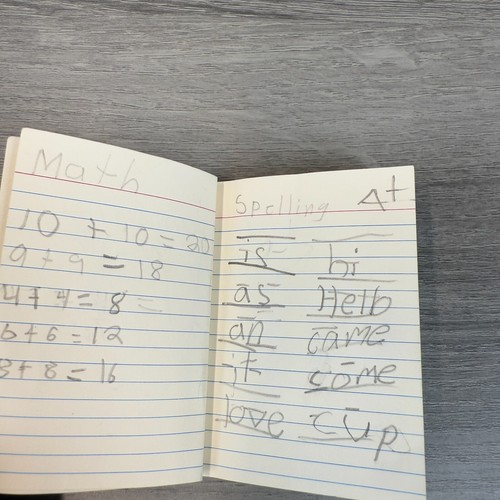 Math
10 + 10 = 20
9 + 9 = 18
4 + 4 = 8
6 + 6 = 12
8 + 8 = 16
Spelling A+
is hi
as Help
an came
it come
love cup